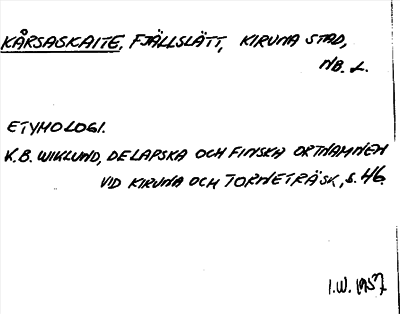 KÅRSASKAITE, FJÄLLSLÄTT, KIRUNA STAD,
NB. L.
ETYMOLOGI.
K.B. WIKLUND, DE LAPSKA OCH FINSKA ORTNAMNEN
VID KIRUNA OCH TORNETRÄSK, S. 46.
I.W. 1957